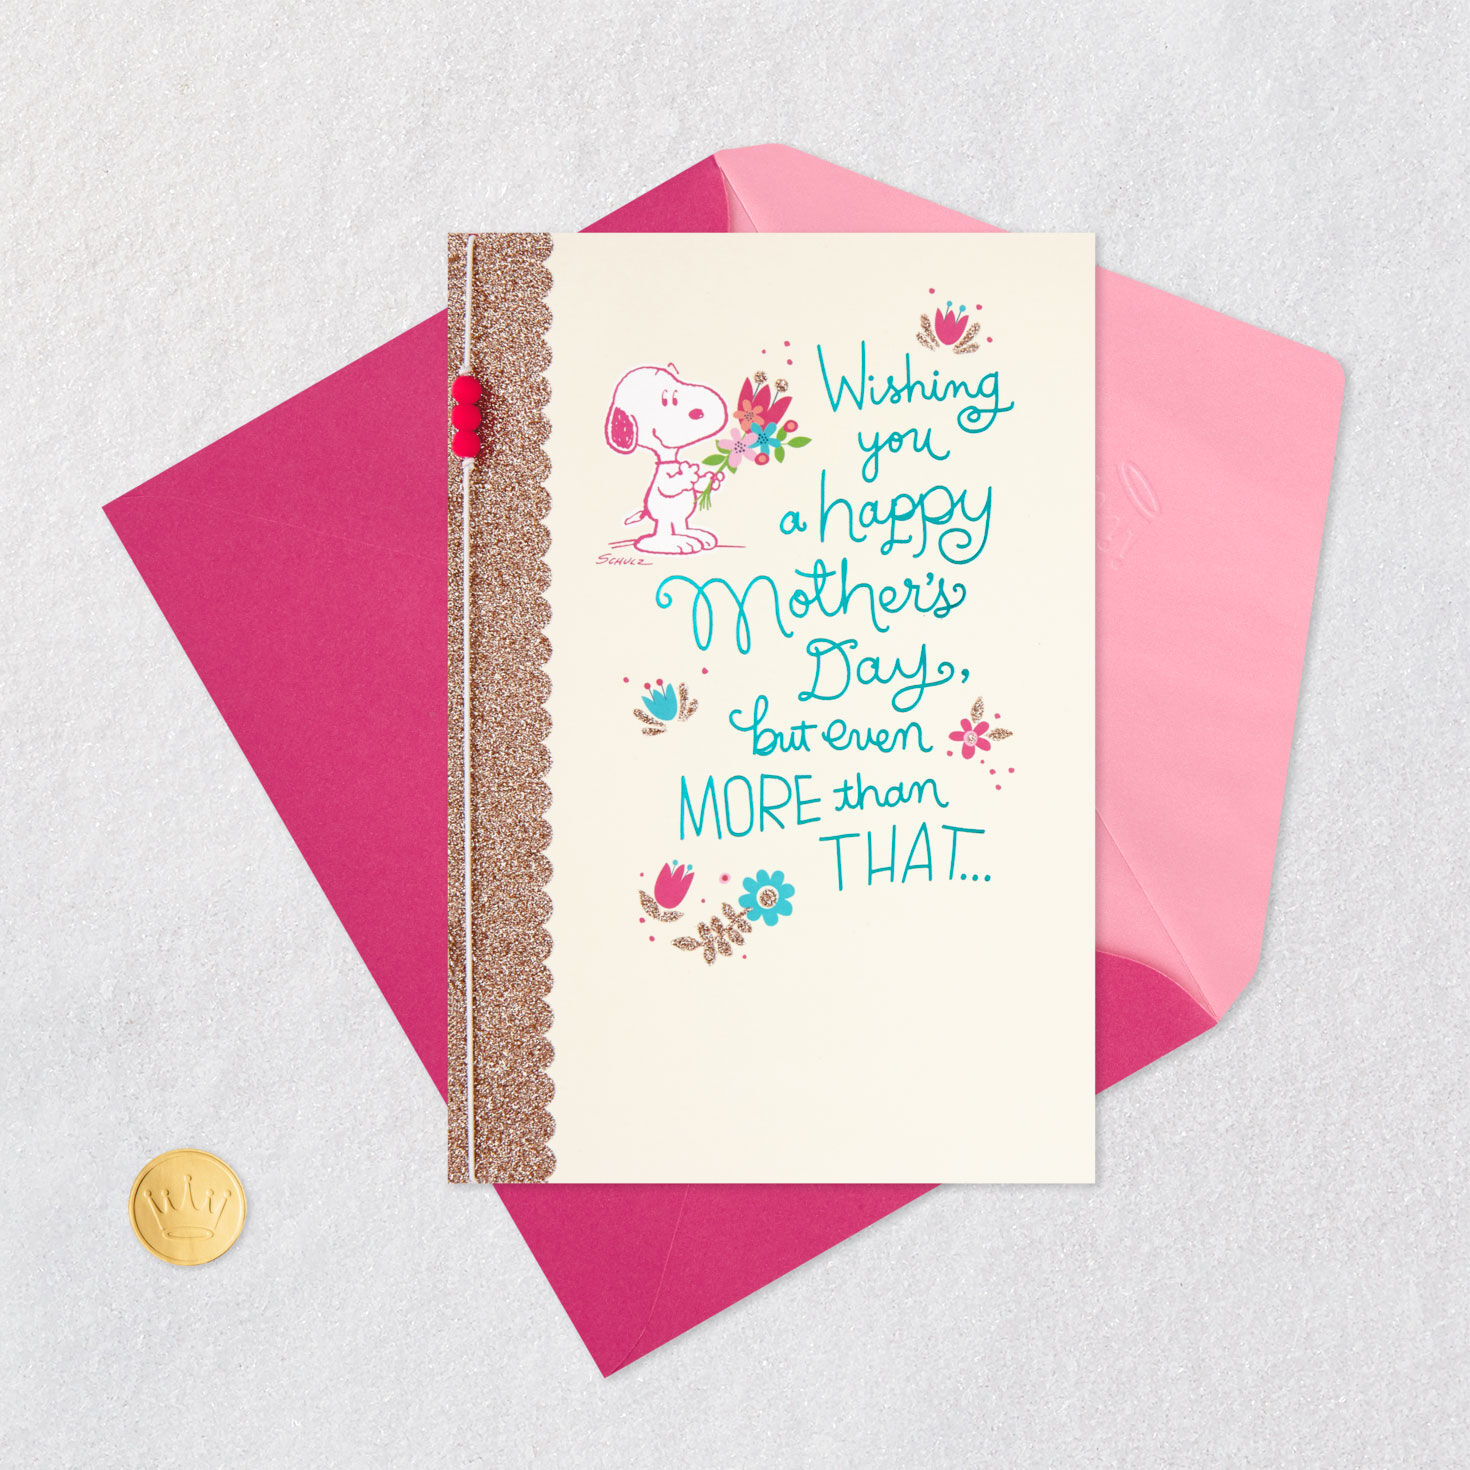 Wishing
you
a happy
Mother's
Day,
but even
MORE than
THAT...
SCHULZ